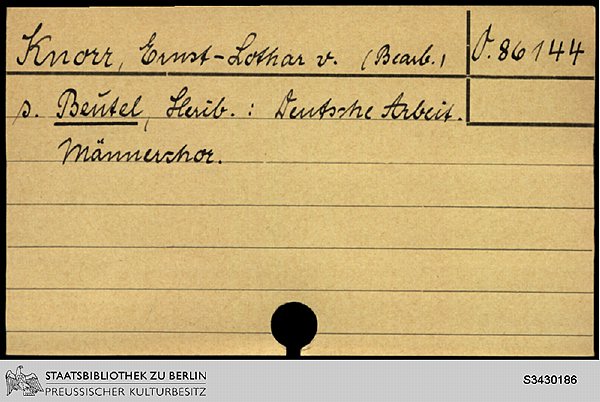 Knorr, Ernst-Lothar v. (Bearb.) O. 86144
s. Beutel, Herib. : Deutsche Arbeit.
Männerchor.
STAATSBIBLIOTHEK ZU BERLIN
PREUSSISCHER KULTURBESITZ
S3430186